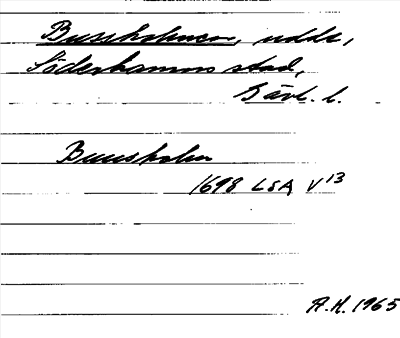 Bussholmen, udde,
Söderhamns stad,
Gävl. l.
Buusholm
1698 LSA V 13
A.H. 1965